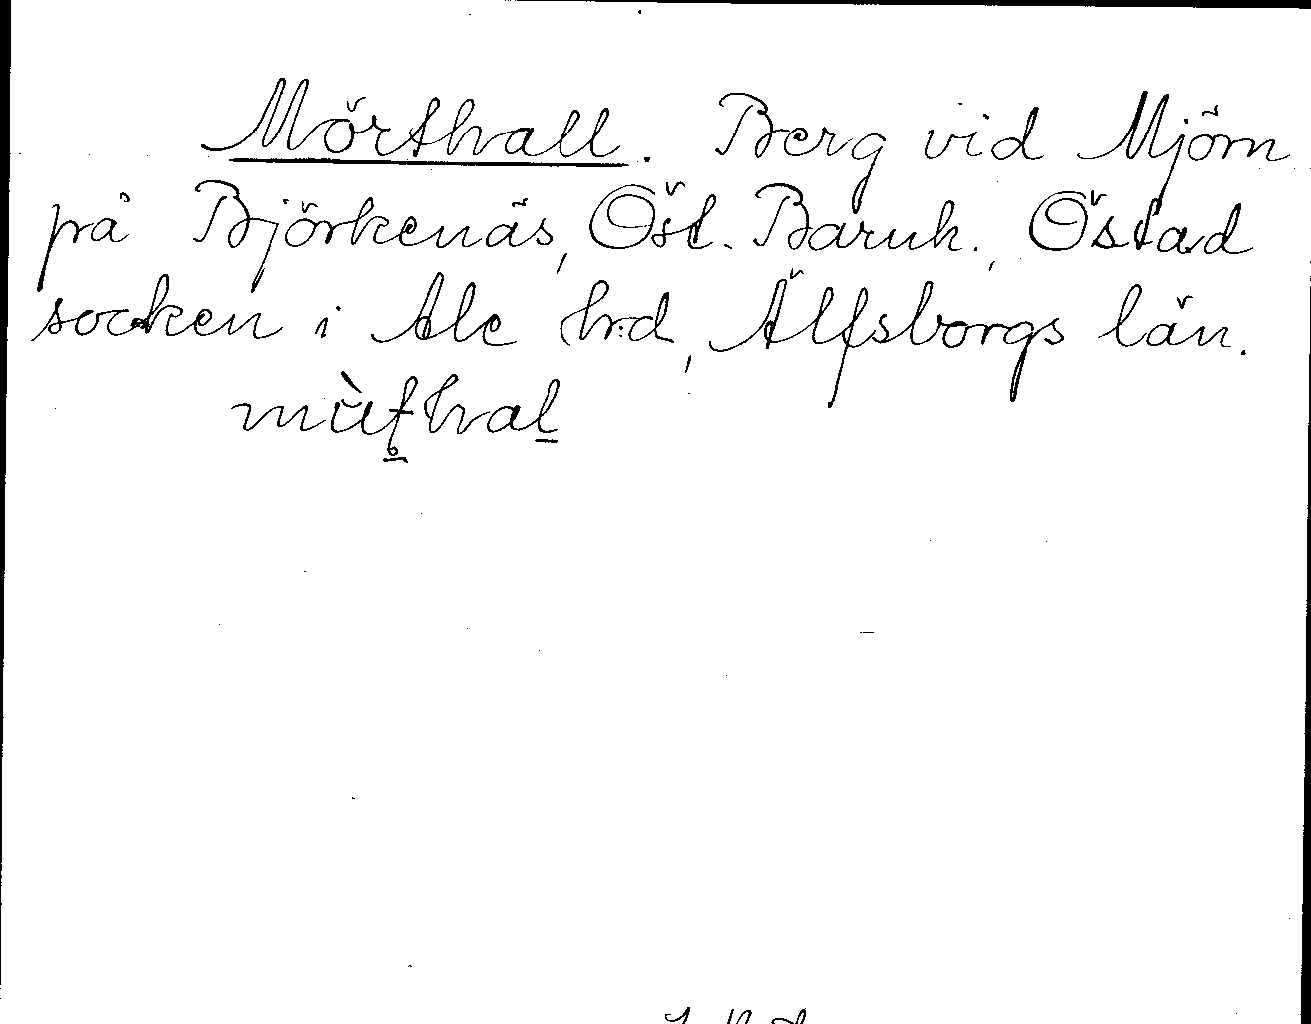 Mörthall. Berg vid Mjörn
på Björkenäs, Öst. Baruk., Östad
socken i Ale h:d, Älfsborgs län.